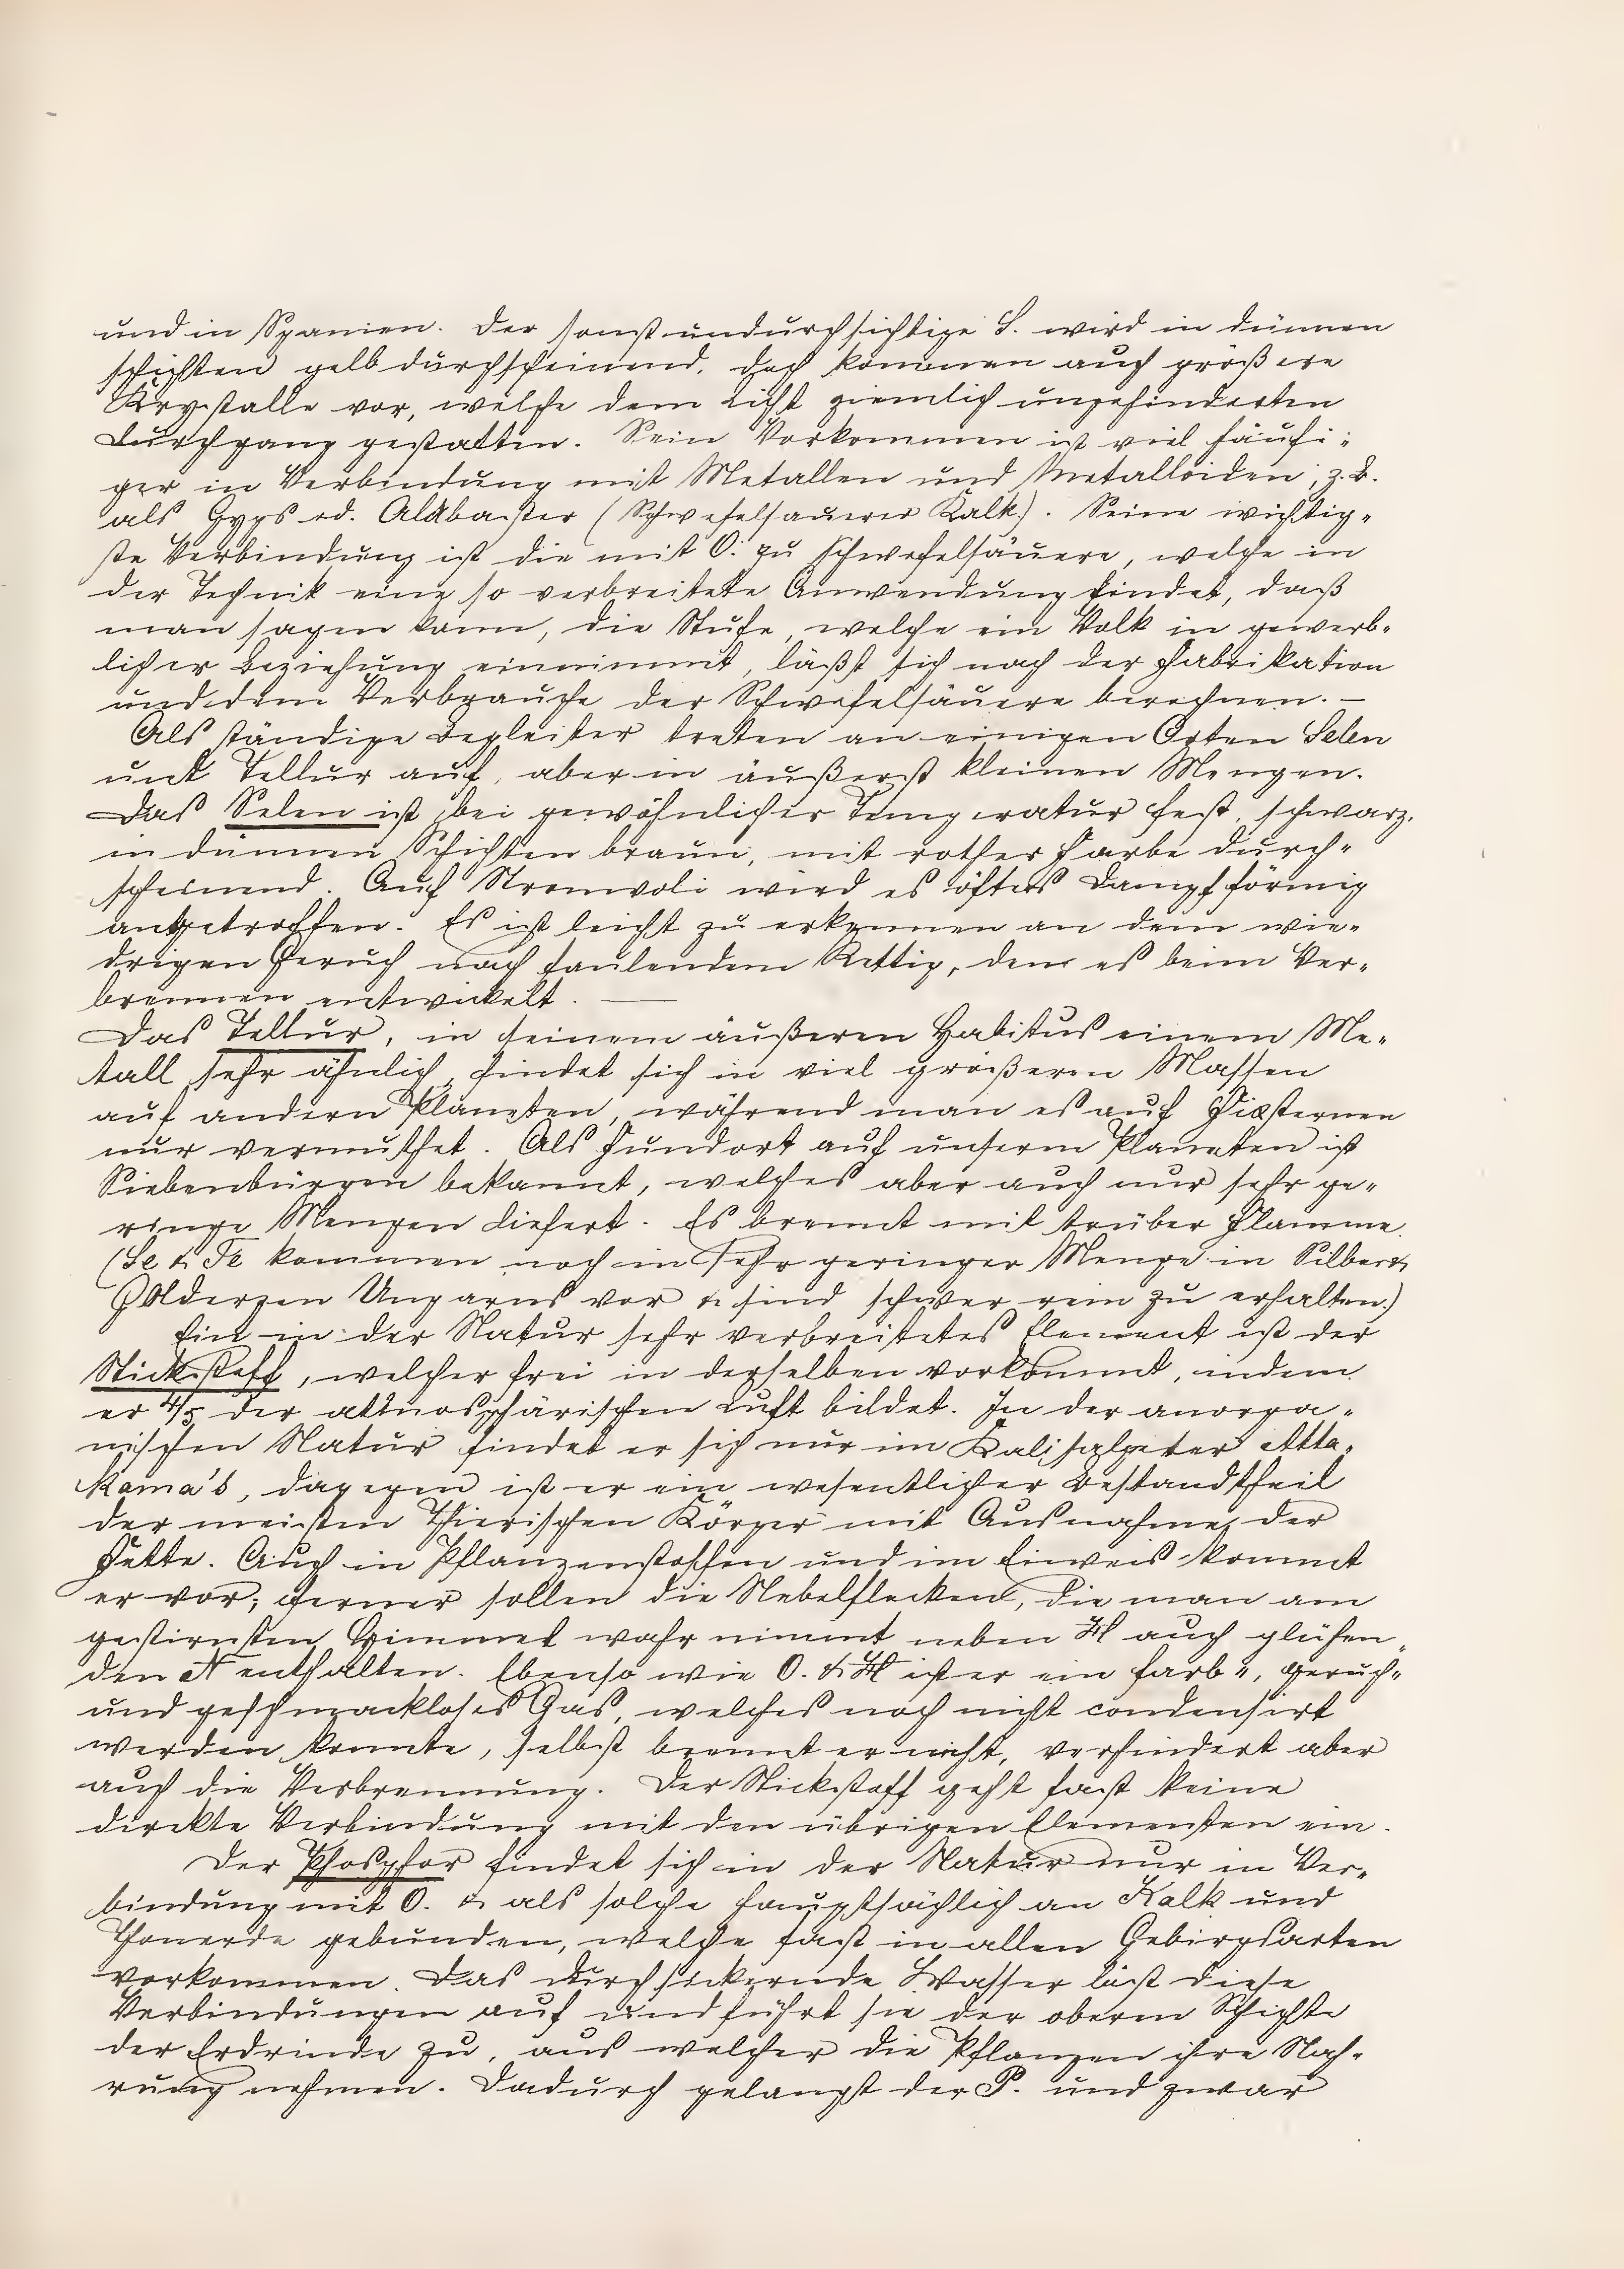 und in Spanien. Der sonst undurchsichtige S. wird in dünnen
schichten gelb durchscheinend, doch kommen auch größere
Krystalle vor, welche dem Licht ziemlich ungehinderten
Durchgang gestatten. Sein Vorkommen ist viel häufi-
ger in Verbindung mit Metallen und Metalloiden, z. B.
als Gyps od. Alabaster (Schwefelsauerer Kalk). Seine wichtig-
ste Verbindung ist die mit O. zu Schwefelsäuere, welche in
der Technik eine so verbreitete Anwendung findet, daß
man sagen kann, die Stufe, welche ein Volk in gewerb-
licher Beziehung einnimmt, läßt sich nach der Fabrikation
und dem Verbrauche der Schwefelsäuere berechnen. —
Als ständige Begleiter treten an einigen Orten Selen
und Tellur auf, aber in äußerst kleinen Mengen.
Das Selen ist bei gewöhnlicher Temperatur fest, schwarz,
in dünnen Schichten braun, mit rother Farbe durch-
scheinend. Auf Stromvoli wird es öfters Dampfförmig
angetroffen. Es ist leicht zu erkennen an dem wie-
drigen Geruch nach faulendem Rettig, den es beim Ver-
brennen entwickelt. —
Das Tellur, in seinem äußeren Habitus einem Me-
tall sehr ähnlich, findet sich in viel größeren Massen
auf andern Planeten, während man es auf Fixsternen
nur vermuthet. Als Fundort auf unserm Planeten ist
Siebenbürgen bekannt, welches aber auch nur sehr ge-
ringe Mengen liefert. Es brennt mit trüber Flamme.
(Se & Te kommen noch in sehr geringer Menge in Silber &
Golderzen Ungarns vor & sind schwer rein zu erhalten.)
Ein in der Natur sehr verbreitetes Element ist der
Stickstoff, welcher frei in derselben vorkommt, indem
er 4/5 der atmosphärischen Luft bildet. In der anorga-
nischen Natur findet er sich nur im Kalisalpeter Atta-
kama's, dagegen ist er ein wesentlicher Bestandtheil
der meisten Thierischen Körper mit Ausnahme der
Fette. Auch in Pflanzenstoffen und im Eiweis kommt
er vor; ferner sollen die Nebelflecken, die man am
gestirnten Himmel wahr nimmt neben H auch glühen-
den N enthalten. Ebenso wie O. & H ist er ein farb-, geruch-
und geschmackloses Gas, welches noch nicht condensirt
werden konnte, selbst brennt er nicht, verhindert aber
auch die Verbrennung. Der Stickstoff geht fast keine
direkte Verbindung mit den übrigen Elementen ein.
Der Phosphor findet sich in der Natur nur in Ver-
bindung mit O. & als solche hauptsächlich an Kalk und
Thonerde gebunden, welche fast in allen Gebirgsarten
vorkommen. Das durchsickernde Wasser löst diese
Verbindungen auf und führt sie der oberen Schichte
der Erdrinde zu, aus welcher die Pflanzen ihre Nah-
rung nehmen. Dadurch gelangt der P. und zwar